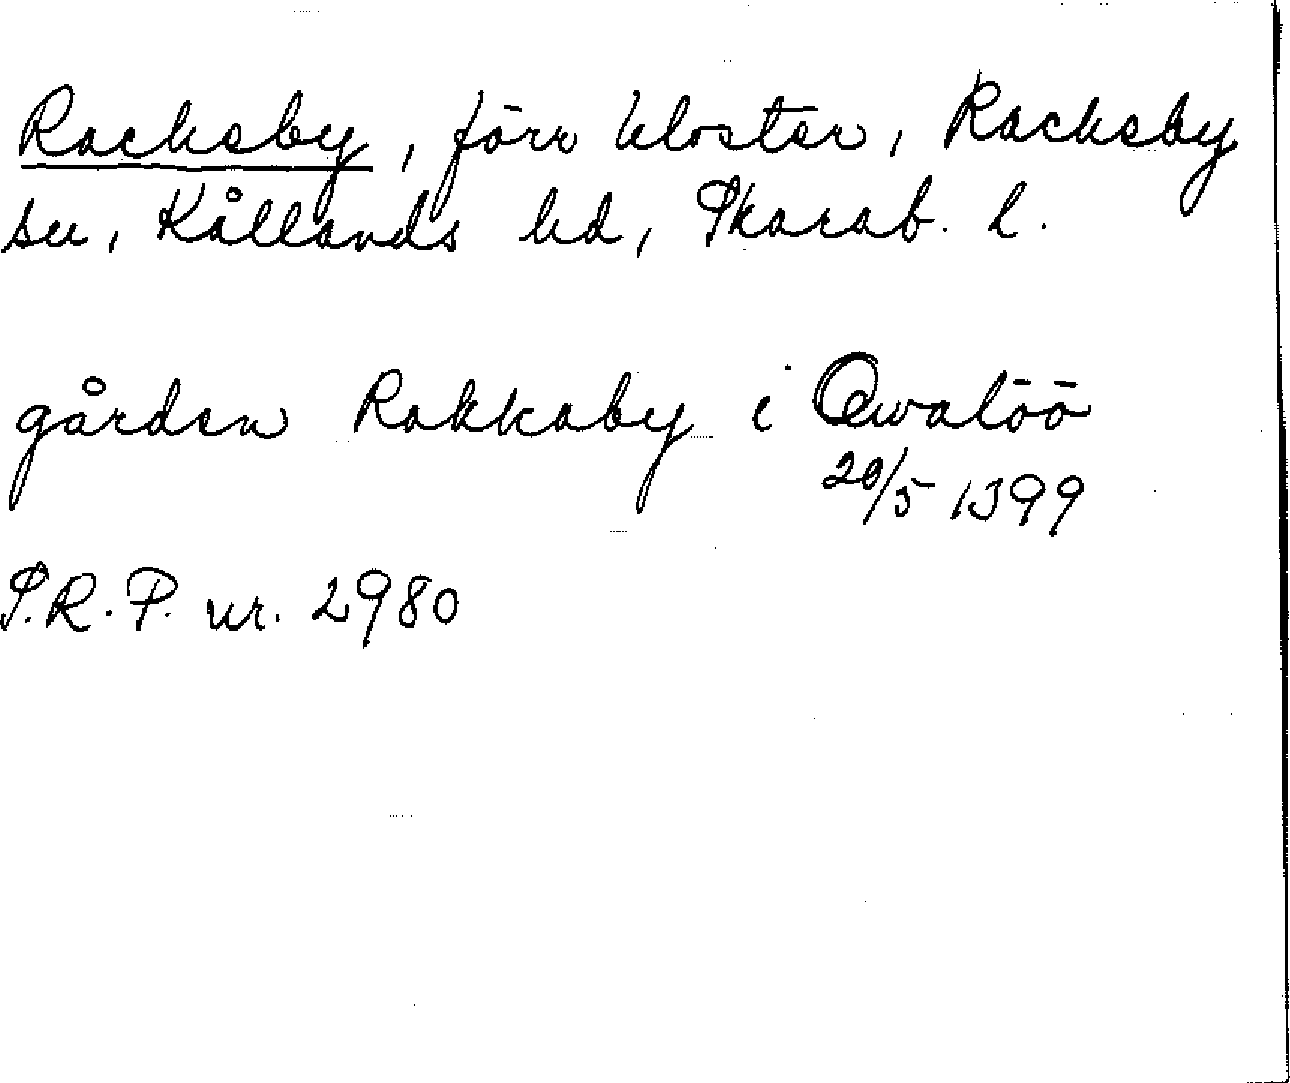 Rackeby, förr kloster, Rackeby
sn, Kållands hd, Skarab. l.
gården Rakkaby i Qwalöö
20/5 1399
S.R.P. nr. 2980